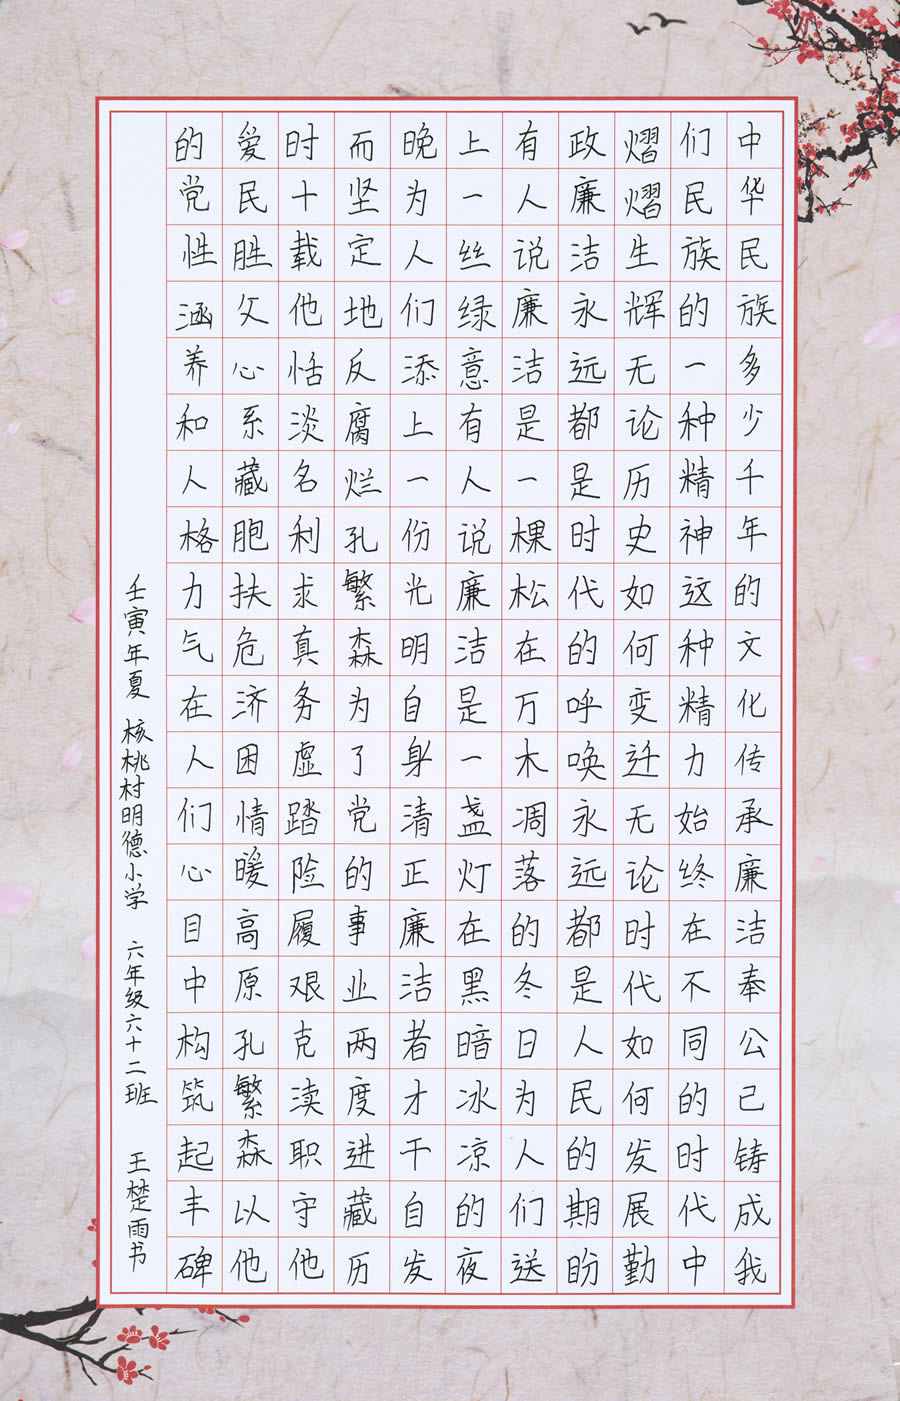 中华民族多少千年的文化传承廉洁奉公己铸成我
们民族的一种精神这种精力始终在不同的时代中
熠熠生辉无论历史如何变迁无论时代如何发展勤
政廉洁永远都是时代的呼唤永远都是人民的期盼
有人说廉洁是一棵松在万木凋落的冬日为人们送
上一丝绿意有人说廉洁是一盏灯在黑暗冰凉的夜
晚为人们添上一份光明自身清正廉洁者才干自发
而坚定地反腐烂孔繁森为了党的事业两度进藏历
时十载他恬淡名利求真务虚踏险履艰克渎职守他
爱民胜父心系藏胞扶危济困情暖高原孔繁森以他
的党性涵养和人格力气在人们心目中构筑起丰碑
壬寅年夏 核桃村明德小学 六年级六十二班 王楚雨书